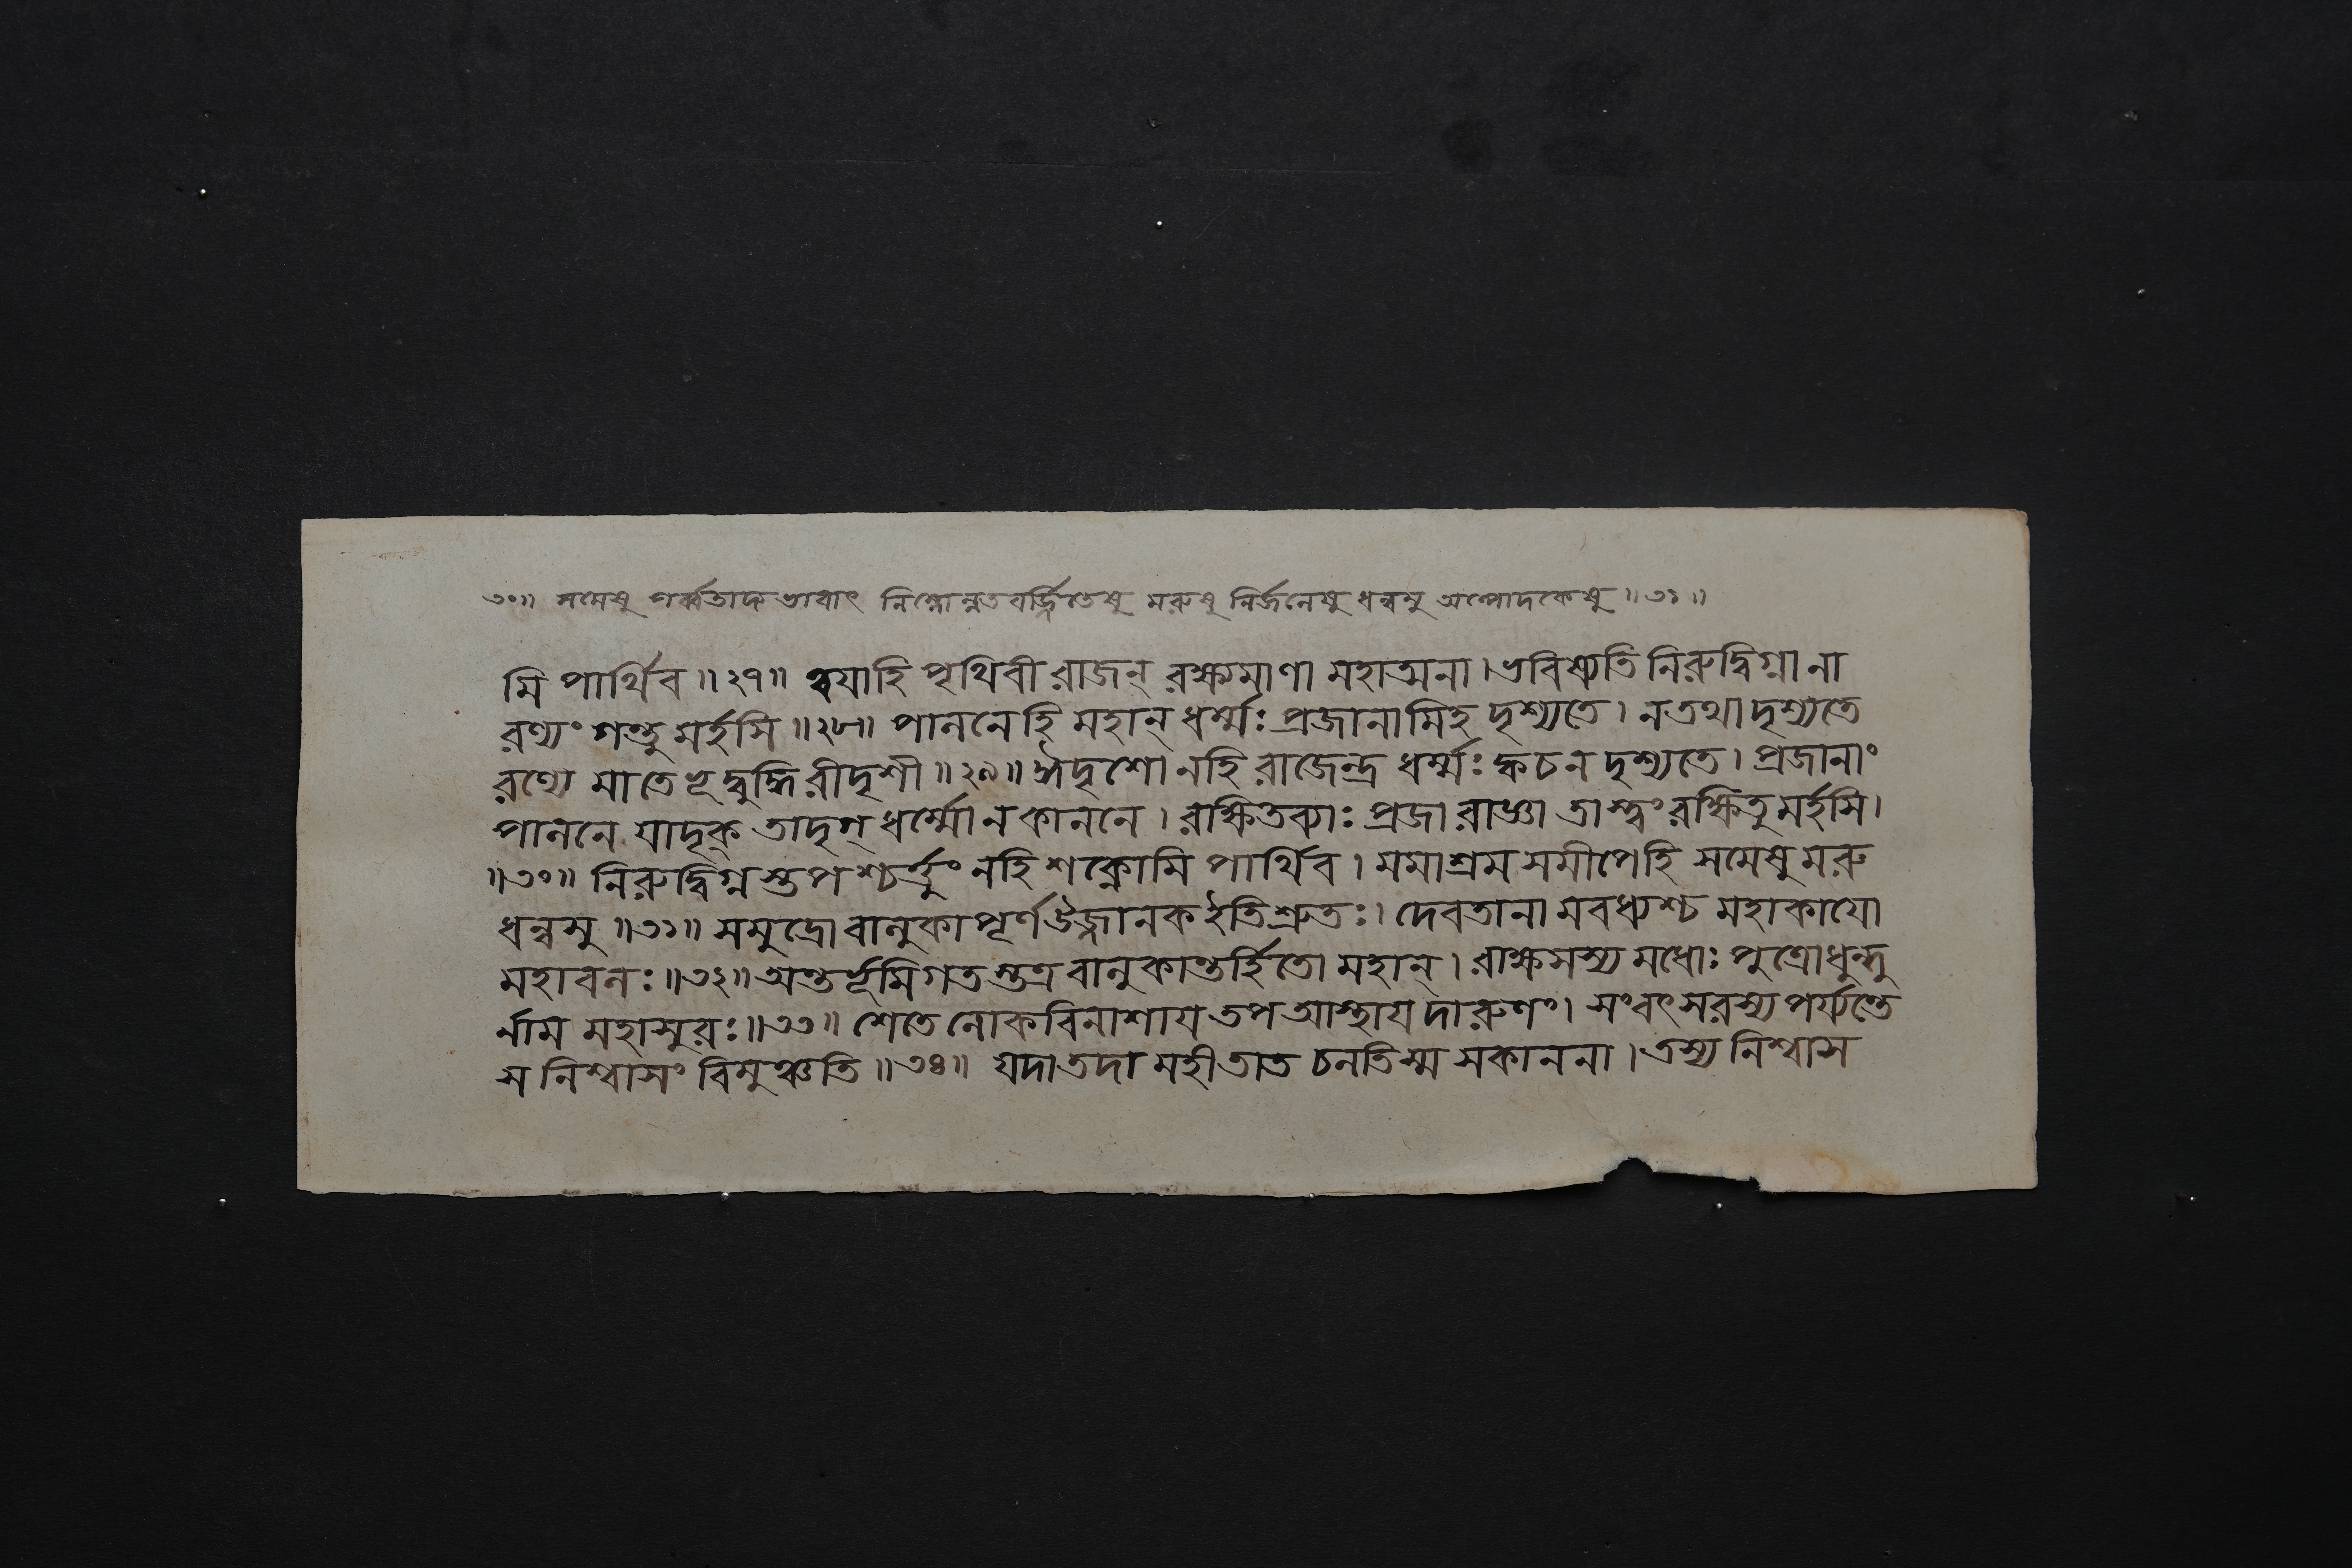 ৩০॥ সমেষু পর্ব্বতাদ্যভাবাৎ নিম্নোন্নতবর্জ্জিতেষু মরুষু নির্জনেষু ধন্বসু অল্পোদকেষু ॥৩১॥
মি পার্থিব ॥২৭॥ ত্বয়াহি পৃথিবী রাজন্ রক্ষ্যমাণা মহাত্মনা। ভবিষ্যতি নিরুদ্বিগ্না না
রণ্যং গন্তু মর্হসি ॥২৮॥ পালনেহি মহান্ ধর্ম্মঃ প্রজানামিহ দৃশ্যতে। ন তথা দৃশ্যতে
রণ্যে মাতেভূদ্বুদ্ধিরীদৃশী ॥২৯॥ ঈদৃশো নহি রাজেন্দ্র ধর্ম্মঃ ক্বচন দৃশ্যতে। প্রজানাং
পালনে যাদৃক্ তাদৃগ্ ধর্ম্মো ন কাননে। রক্ষিতব্যাঃ প্রজা রাজ্ঞা তাস্ত্বং রক্ষিতুমর্হসি।
॥৩০॥ নিরুদ্বিগ্নস্তপশ্চর্ত্তুং নহি শক্নোমি পার্থিব। মমাশ্রমসমীপেহি সমেষু মরু
ধন্বসু ॥৩১॥ সমুদ্রো বালুকাপূর্ণ উজ্জানক ইতিশ্রুতঃ। দেবতানা মবধ্যশ্চ মহাকায়ো
মহাবলঃ ॥৩২॥ অন্তর্ভূমিগতস্তত্র বালুকান্তর্হিতো মহান্। রাক্ষসস্য মধোঃ পুত্রো ধুন্ধু
র্নাম মহাসুরঃ ॥৩৩॥ শেতে লোকবিনাশায় তপ আস্থায় দারুণং। সংবৎসরস্য পর্য্যন্তে
স নিশ্বাসং বিমুঞ্চতি ॥৩৪॥ যদা তদা মহী তাত চলতিস্ম সকাননা। তস্য নিশ্বাস